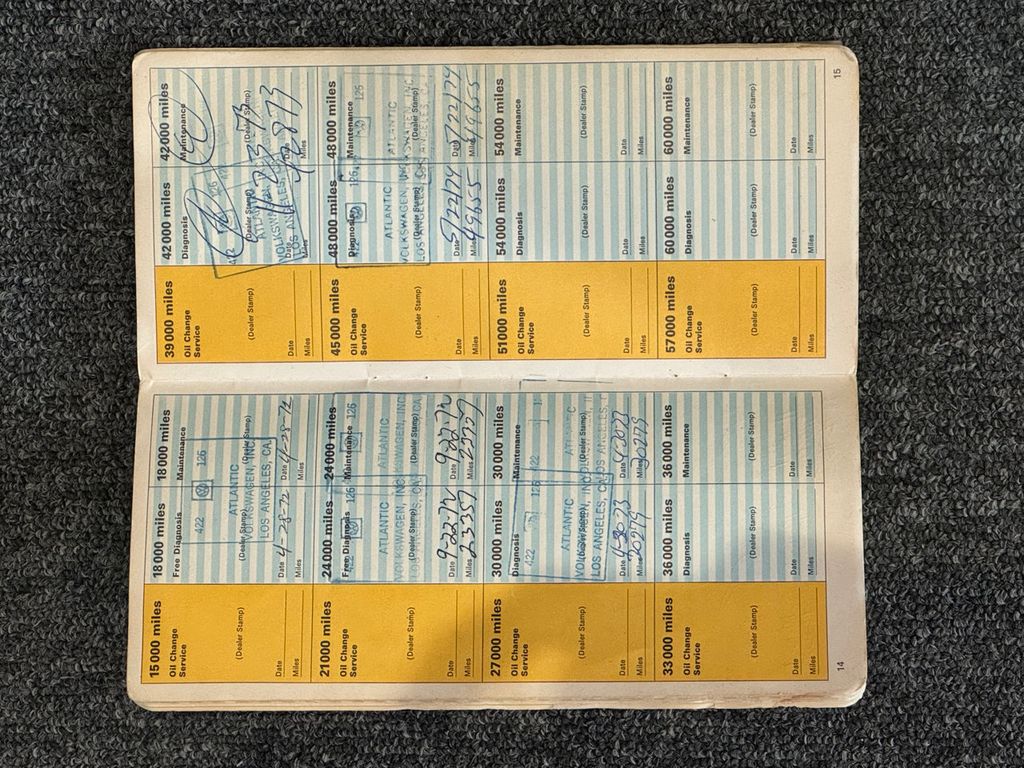 15 000 miles
Oil Change
Service
(Dealer Stamp)
Date
Miles
18 000 miles
Free Diagnosis
422
(Dealer Stamp)
Date 4-28-72
Miles
18 000 miles
Maintenance
126
ATLANTIC
VOLKSWAGEN, INC.
LOS ANGELES, CA.
(Dealer Stamp)
Date 4-28-72
Miles
21 000 miles
Oil Change
Service
(Dealer Stamp)
Date
Miles
24 000 miles
Free Diagnosis
422 126
ATLANTIC
VOLKSWAGEN, INC.
LOS ANGELES, CA.
(Dealer Stamp)
Date 9-22-72
Miles 23357
24 000 miles
Maintenance
126
ATLANTIC
VOLKSWAGEN, INC
LOS ANGELES, CA.
(Dealer Stamp)
Date 9-22-72
Miles
27 000 miles
Oil Change
Service
(Dealer Stamp)
Date
Miles
30 000 miles
Diagnosis
422 126
ATLANTIC
VOLKSWAGEN, INC.
LOS ANGELES, CA
Date
Miles 30279
30 000 miles
Maintenance
422
ATLANTIC
LOS ANGELES,
(Dealer Stamp)
Date
Miles
33 000 miles
Oil Change
Service
(Dealer Stamp)
Date
Miles
36 000 miles
Diagnosis
(Dealer Stamp)
Date
Miles
36 000 miles
Maintenance
(Dealer Stamp)
Date
Miles
14
39 000 miles
Oil Change
Service
(Dealer Stamp)
Date
Miles
42 000 miles
Diagnosis
126
(Dealer Stamp)
ATLANTIC
VOLKSWAGEN
LOS ANGELES,
Date
Miles
42 000 miles
Maintenance
(Dealer Stamp)
Miles
45 000 miles
Oil Change
Service
(Dealer Stamp)
Date
Miles
48 000 miles
Diagnosis
126
ATLANTIC
VOLKSWAGEN, INC
LOS ANGELES, CA
(Dealer Stamp)
Date 5/22/74
Miles 49655
48 000 miles
Maintenance
126
ATLANTIC
VOLKSWAGEN, INC
LOS ANGELES,
(Dealer Stamp)
Date 5/22/74
Miles 49655
51 000 miles
Oil Change
Service
(Dealer Stamp)
Date
Miles
54 000 miles
Diagnosis
(Dealer Stamp)
Date
Miles
54 000 miles
Maintenance
(Dealer Stamp)
Date
Miles
57 000 miles
Oil Change
Service
(Dealer Stamp)
Date
Miles
60 000 miles
Diagnosis
(Dealer Stamp)
Date
Miles
60 000 miles
Maintenance
(Dealer Stamp)
Date
Miles
15